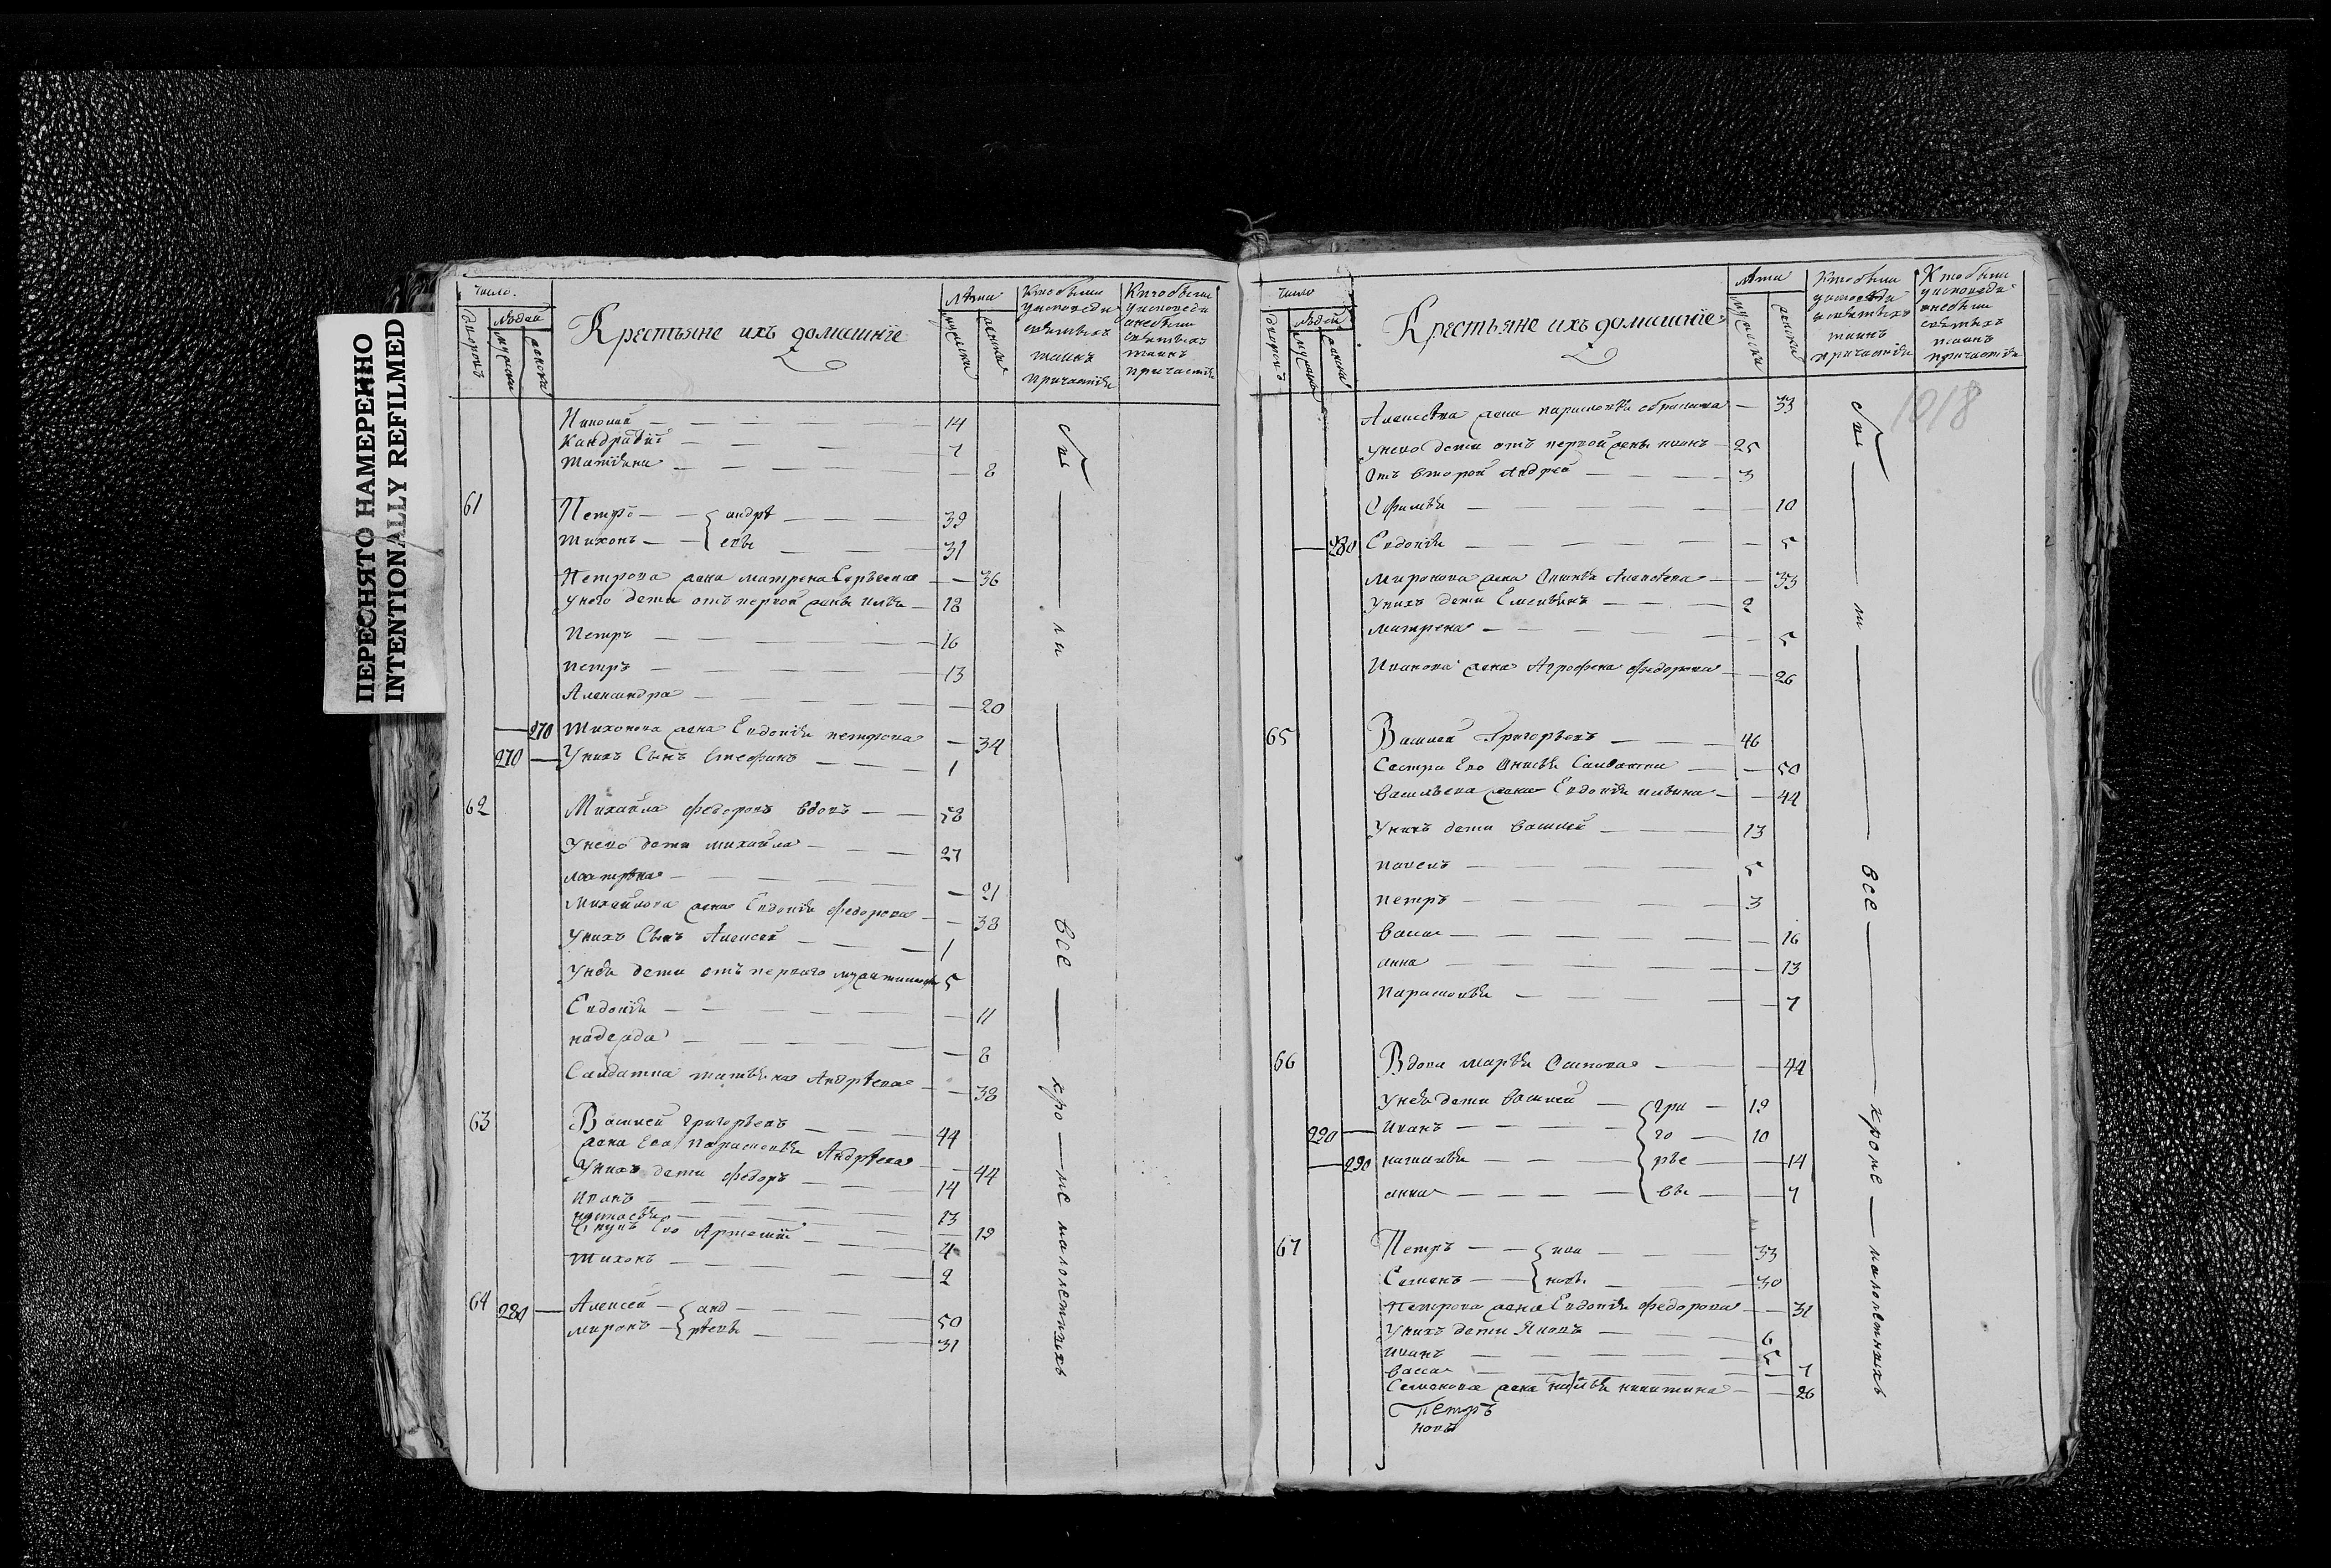 ПЕРЕСНЯТО НАМЕРЕННО
INTENTIONALLY REFILMED
число.
людей
дворовъ
мужеска
женска
Крестьяне ихъ домашніе
лѣта
мужеска
женска
Кто были
у исповеди
и святыхъ
таинъ
причастія
Кто были
у исповеди
а не были
святыхъ
таинъ
причастія
Николай 14
Кандратій 7
Татіяна 8
61 Петръ андрѣ 39
Тихонъ евы 31
Петрова жена матрена 36
У него дети отъ первой жены 18
Петръ 16
петръ 13
Александра 20
270 Тихонова жена Евдокія петрова 34
270 У нихъ Сынъ Стефанъ 1
62 Михайла федоровъ вдовъ 58
У него дети михайла 27
матрена 21
Михайлова жена Евдокія федорова 38
У нихъ Сынъ Алексей 1
У нея дети отъ перваго мужа 5
Евдокія 11
надежда 8
Салдатка татьяна Андрѣева 38
63 Василей григорьевъ 44
жена Его Парасковья Андрѣева 44
У нихъ дети федоръ 14
Иванъ 13
настасья 19
Внукъ Его Артемій 4
Тихонъ 2
64 280 Алексей анд 50
миронъ рѣевы 31
бы
ли
все
кро
ме малолетныхъ
число
людей
дворовъ
мужеска
женска
Крестьяне ихъ домашніе
лѣта
мужеска
женска
Кто были
у исповеди
и святыхъ
таинъ
причастія
Кто были
у исповеди
а не были
святыхъ
таинъ
причастія
1018
Алексѣева жена парасковья 33
У него дети отъ первой жены иванъ 25
Отъ второй Андрей 3
Офимья 10
280 Евдокія 5
Миронова жена 33
У нихъ дети Емельянъ 2
матрена 5
Иванова жена Агрофена федорова 26
65 Василей Григорьевъ 46
Сестра Его Анисья Салдатка 50
Васильева жена Евдокія 44
У нихъ дети василей 13
павелъ 5
петръ 3
васса 16
анна 13
Парасковья 7
66 Вдова марья Осипова 44
У нея дети василей гри 19
290 Иванъ го 10
290 наталья рье 14
анна вы 7
67 Петръ ива 33
Семенъ новы 30
Петрова жена Евдокія федорова 31
У нихъ дети Яковъ 6
иванъ 5
васса 7
Семенова жена никитина 26
Петръ
новъ
бы
ли
все
кроме
малолетныхъ